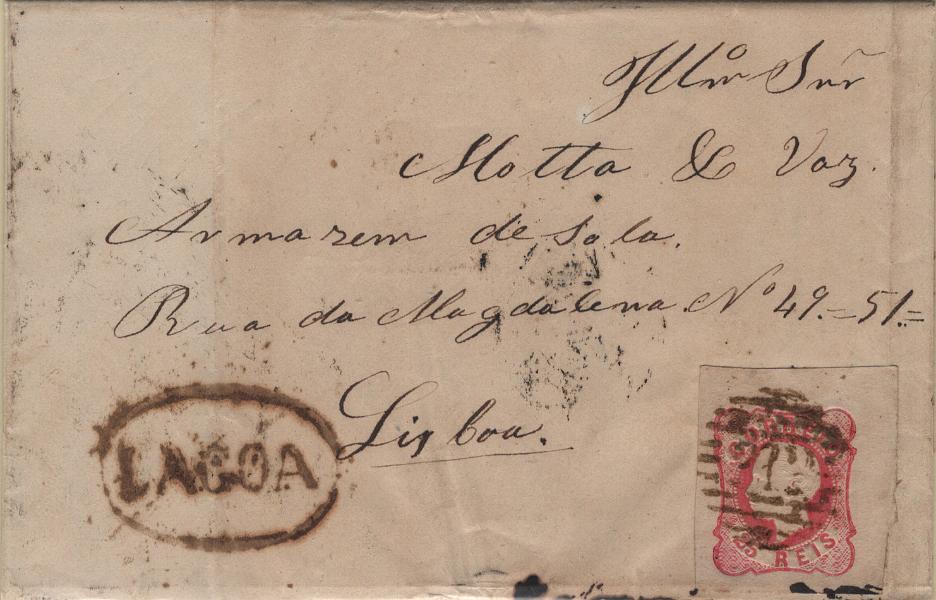 Illmº Snr
Motta & Vaz.
Armazem de Sola.
Rua da Magdalena Nº 49.=51.=
Lisboa.
LAGOA
CORREIO
25 REIS